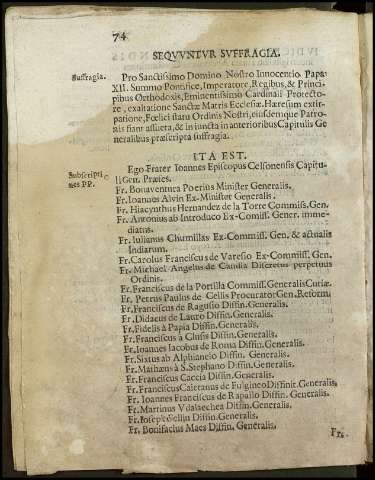 74
SEQVVNTVR SVFFRAGIA.
Suffragia.
Pro Sanctissimo Domino Nostro Innocentio Papa
XII. Summo Pontifice, Imperatore, Regibus, & Princi-
pibus Orthodoxis, Eminentissimo Cardinali Protecto-
re, exaltatione Sanctæ Matris Ecclesiæ, Hæresum extir-
patione, Fœlici statu Ordinis Nostri, eiusdemque Patro-
nis fiant assueta, & in iuncta in anterioribus Capitulis Ge
neralibus præscripta suffragia.
ITA EST.
Subscripti
nes PP.
Ego Frater Ioannes Episcopus Celsonensis Capitu-
li Gen. Præses.
Fr. Bonauentura Poerius Minister Generalis.
Fr. Ioannes Alvin Ex-Minister Generalis.
Fr. Hiacynthus Hernandez de la Torre Commiss. Gen.
Fr. Antonius ab Introduco Ex-Comiss. Gener. imme-
diatus.
Fr. Iulianus Chumillas Ex-Commiss. Gen. & actualis
Indiarum.
Fr. Carolus Franciscus de Varesio Ex-Commiss. Gen.
Fr. Michael Angelus de Candia Discretus perpetuus
Ordinis.
Fr. Franciscus de la Portilla Commiss. Generalis Curiæ.
Fr. Petrus Paulus de Gellis Procurator Gen. Reform.
Fr. Franciscus de Ragusio Diffin. Generalis.
Fr. Didacus de Lauro Diffin. Generalis.
Fr. Fidelis à Papia Diffin. Generalis.
Fr. Franciscus à Clusis Diffin. Generalis.
Fr. Ioannes Iacobus de Roma Diffin. Generalis.
Fr. Sixtus ab Alphiancio Diffin. Generalis.
Fr. Mathæus à S. Stephano Diffin. Generalis.
Fr. Franciscus Caccia Diffin. Generalis.
Fr. Franciscus Caietanus de Fulgineo Diffinit. Generalis.
Fr. Ioannes Franciscus de Rapallo Diffin. Generalis.
Fr. Martinus Vdalaechea Diffin. Generalis.
Fr. Ioseph Diffin. Generalis.
Fr. Bonifacius Maes Diffin. Generalis.
Fr.